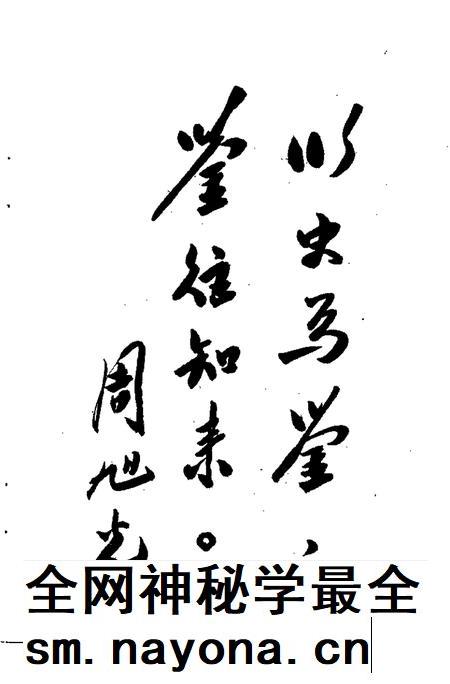 以史为鉴，
鉴往知来。
周旭光
全网神秘学最全
sm.nayona.cn